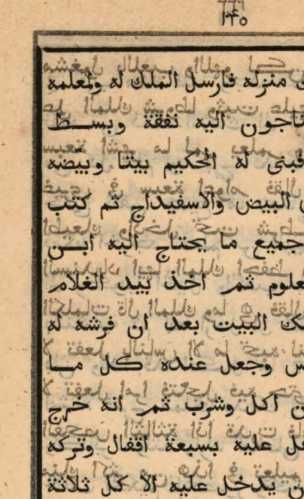 ١٣٥
منزله فارسل الملك له ولمعلمه
اجون اليه نفقة وبسط
فبنى له الحكيم بيتا وبيضه
البيض والاسفيداج ثم كتب
جميع ما يحتاج اليه ابن
علوم ثم اخذ بيد الغلام
ك البيت بعد ان فرشه له
س وجعل عنده كل ما
ن اكل وشرب ثم انه خرج
فل عليه بسبعة اقفال وتركه
يدخل عليه الا كل ثلاثة